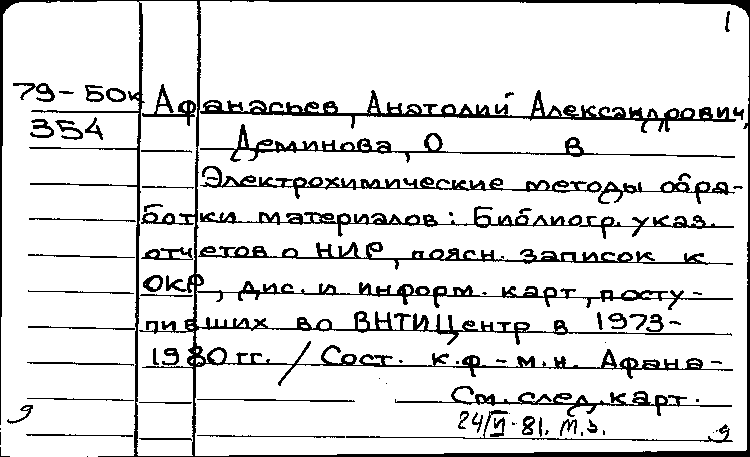 1
79-50к Афанасьев, Анатолий Александрович,
354 Деминова, О В
Электрохимические методы обра-
ботки материалов: Библиогр. указ.
отчетов о НИР, поясн. записок к
ОКР, дис. и информ. карт, посту-
пивших во ВНТИЦентр в 1973-
1980 гг. / Сост. к.ф-м.н. Афана-
См. след. карт.
24/VI-81. М.З.
9 9